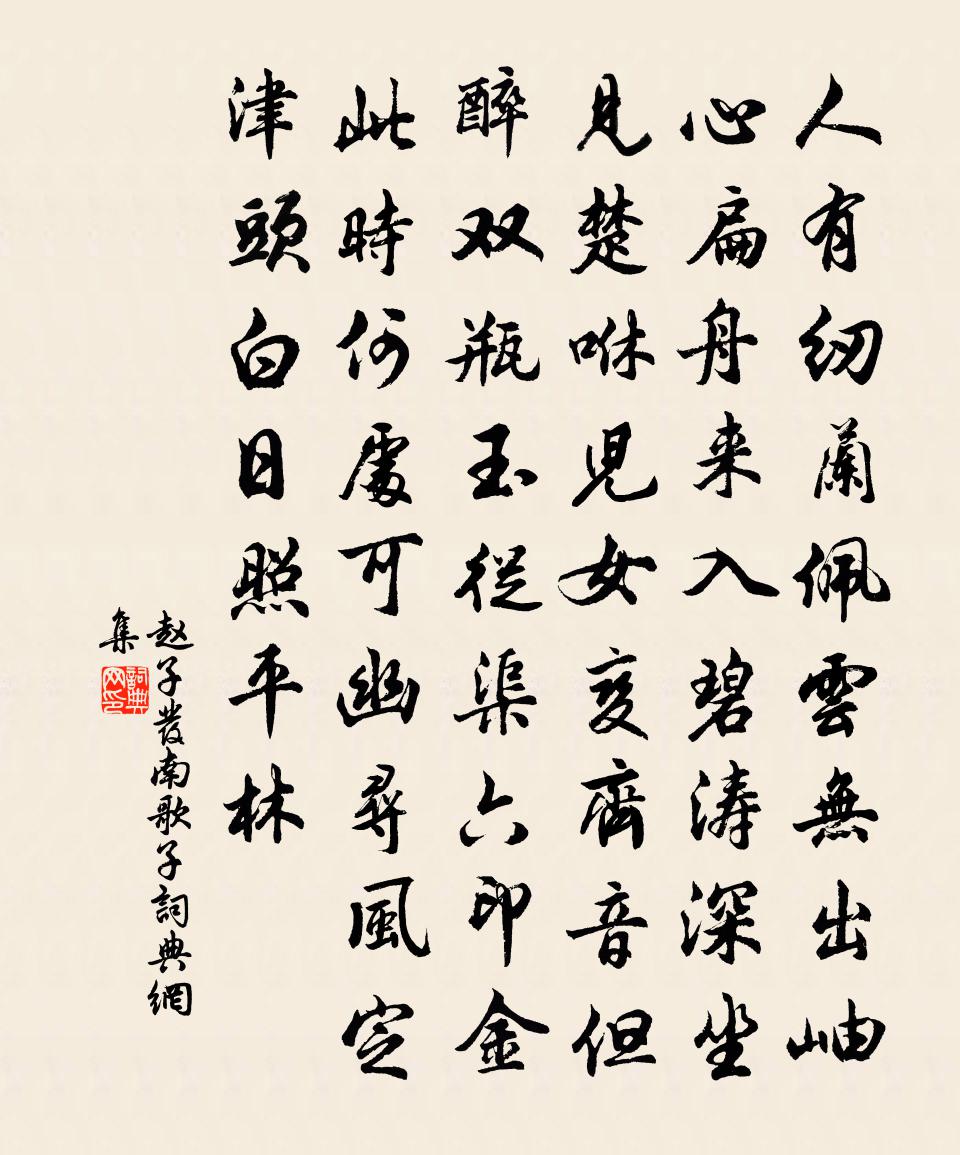 人有纫蘭佩雲無出岫
心扁舟来入碧涛深坐
見楚咻児女变齊音但
醉双瓶玉從渠六印金
此時何處可幽尋風定
津頭白日照平林
赵子發南歌子詞典網
集
詞典
网印